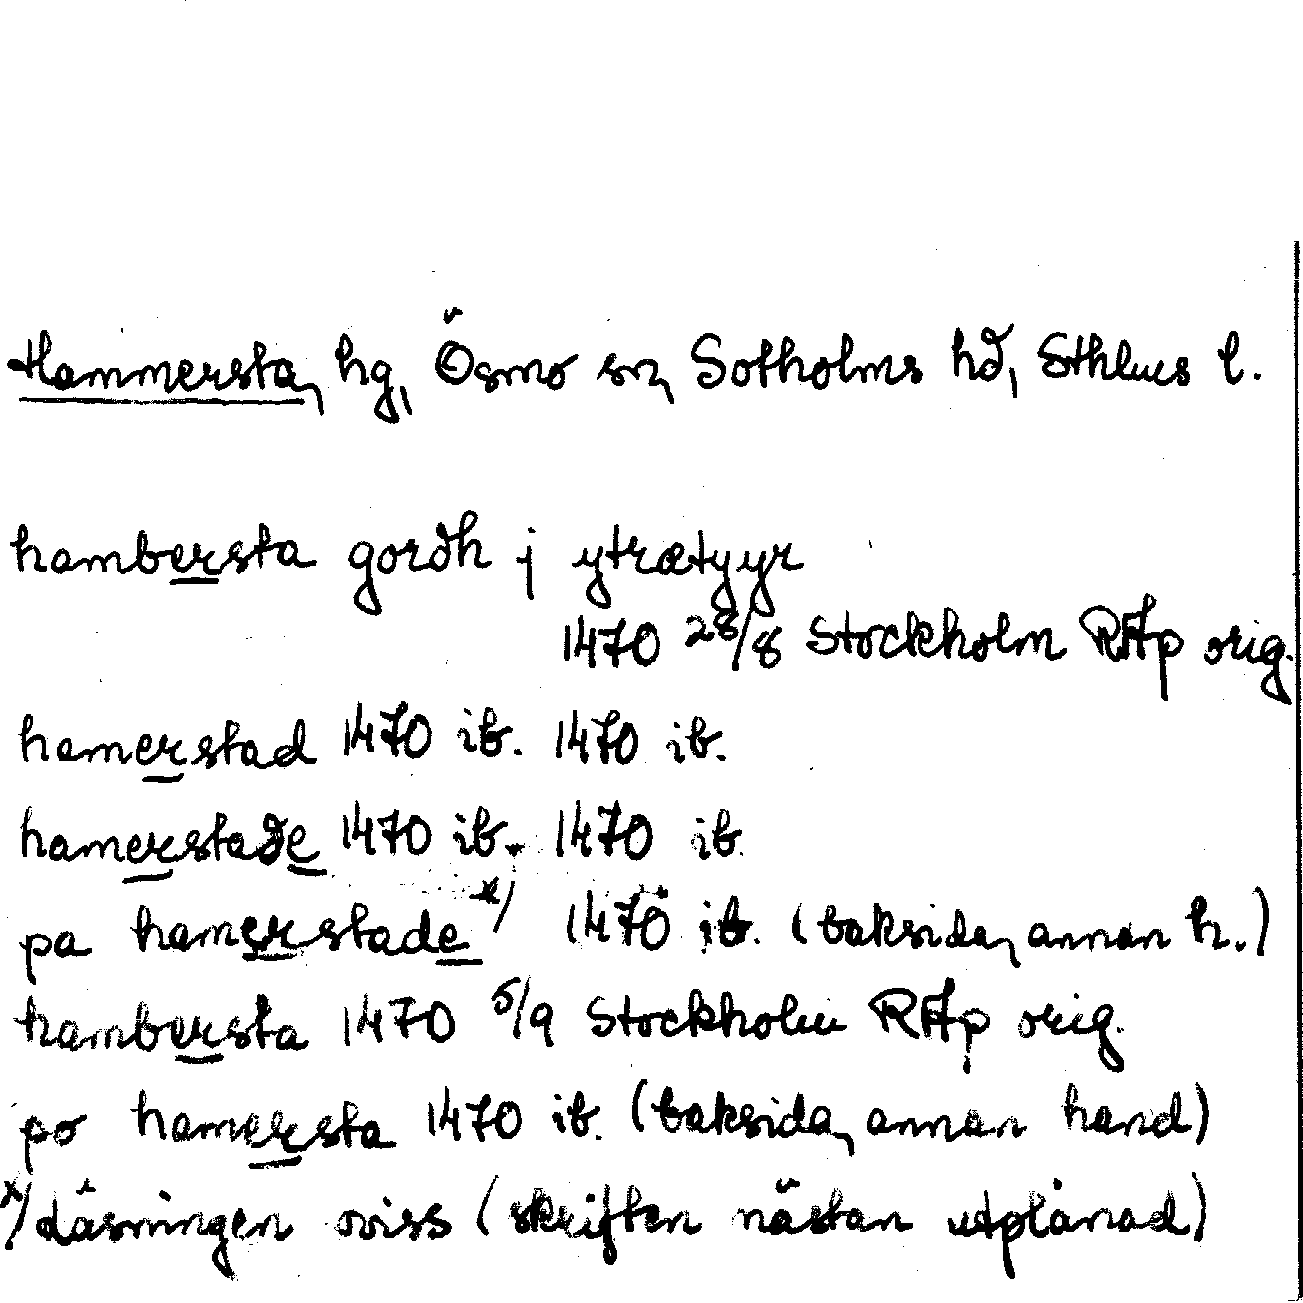 Hammersta, hg, Ösmo sn, Sotholms hd, Sthlms l.
hambersta gordh j ytrætyyr
1470 28/8 Stockholm RAp orig.
hamerstad 1470 ib. 1470 ib.
hamerstade 1470 ib. 1470 ib.
pa hamerstade x/ 1470 ib. (baksida, annan h.)
hambersta 1470 5/9 Stockholm RAp orig.
po hamersta 1470 ib. (baksida, annan hand)
x/ Läsningen oviss (skriften nästan utplånad)